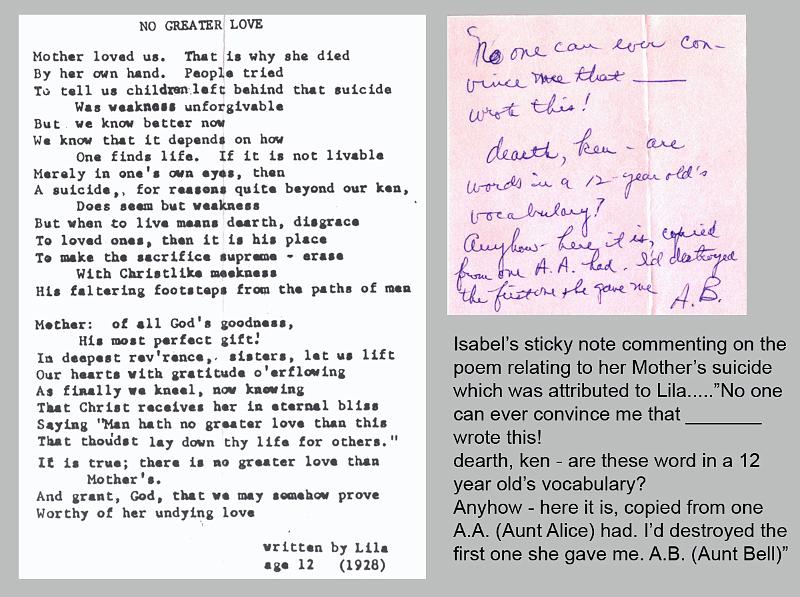 NO GREATER LOVE
Mother loved us. That is why she died
By her own hand. People tried
To tell us children left behind that suicide
Was weakness unforgivable
But we know better now
We know that it depends on how
One finds life. If it is not livable
Merely in one's own eyes, then
A suicide,, for reasons quite beyond our ken,
Does seem but weakness
But when to live means dearth, disgrace
To loved ones, then it is his place
To make the sacrifice supreme - erase
With Christlike meekness
His faltering footsteps from the paths of men
Mother: of all God's goodness,
His most perfect gift!
In deepest rev'rence,. sisters, let us lift
Our hearts with gratitude o'erflowing
As finally we kneel, now knowing
That Christ receives her in eternal bliss
Saying "Man hath no greater love than this
That thoudst lay down thy life for others."
It is true; there is no greater love than
Mother's.
And grant, God, that we may somehow prove
Worthy of her undying love
written by Lila
age 12 (1928)
No one can ever con-
vince me that ____
wrote this!
dearth, ken - are
words in a 12-year old's
vocabulary?
Anyhow - here it is, copied
from one A.A. had. I'd destroyed
the first one she gave me
A.B.
Isabel's sticky note commenting on the
poem relating to her Mother's suicide
which was attributed to Lila....."No one
can ever convince me that _______
wrote this!
dearth, ken - are these word in a 12
year old's vocabulary?
Anyhow - here it is, copied from one
A.A. (Aunt Alice) had. I'd destroyed the
first one she gave me. A.B. (Aunt Bell)"